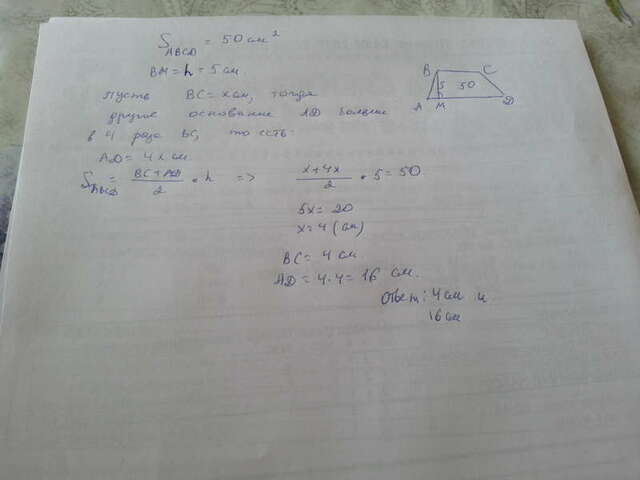 S ABCD = 50 см²
BM = h = 5 см
B C
5 50
A M D
Пусть BC = x см, тогда
другое основание AD больше
в 4 раза BC, то есть:
AD = 4x см
S ABCD = BC + AD / 2 • h => x+4x / 2 • 5 = 50
5x = 20
x = 4 (см)
BC = 4 см
AD = 4·4 = 16 см.
Ответ: 4 см и
16 см